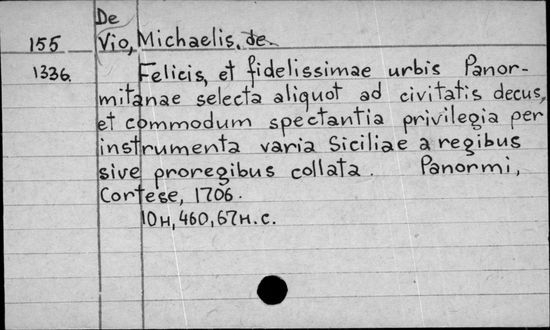 De
155 Vio, Michaelis, de.
1336. Felicis, et fidelissimae urbis Panor-
mitanae selecta aliquot ad civitatis decus,
et commodum spectantia privilegia per
instrumenta varia Siciliae a regibus
sive proregibus collata. Panormi,
Cortese, 1706.
10н, 460, 67н.с.